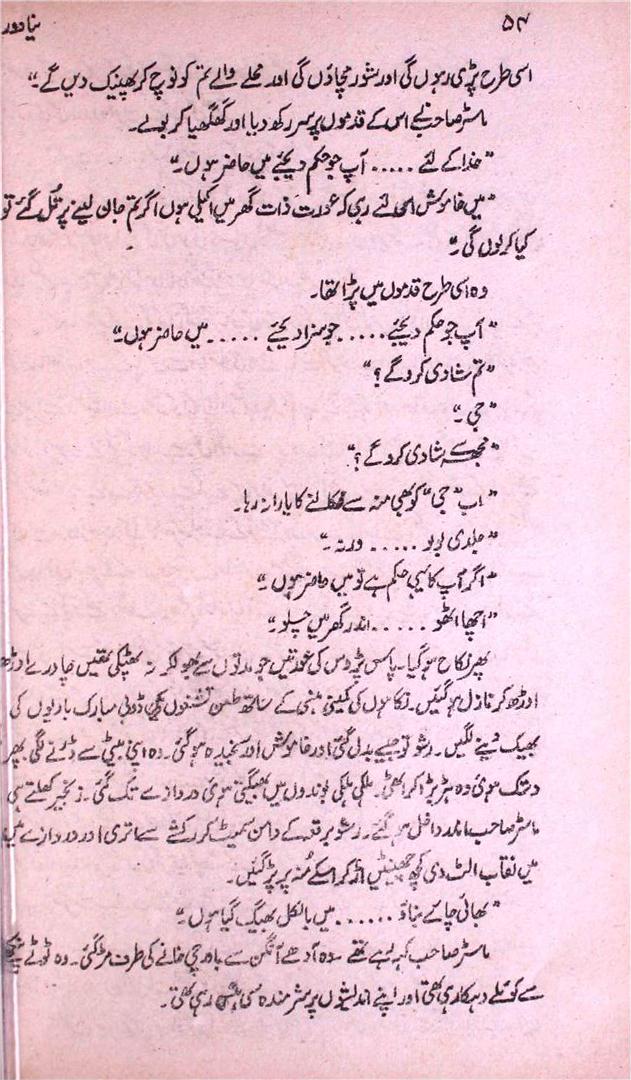 ۵۴ نیا دور
اسی طرح پڑی رہوں گی اور شور مچاؤں گی اور محلے والے تم کو نوچ کر پھینک دیں گے۔"
ماسٹر صاحب نے اس کے قدموں پر سر رکھ دیا اور گھگھیا کر بولے۔
"خدا کے لئے ..... آپ جو حکم دیجئے میں حاضر ہوں۔"
"میں خاموش اس لئے رہی کہ عورت ذات گھر میں اکیلی ہوں اگر تم جان لینے پر تُل گئے تو
کیا کرلوں گی۔"
وہ اسی طرح قدموں میں پڑا تھا۔
"آپ جو حکم دیجئے ..... جو سزا دیجئے ..... میں حاضر ہوں۔"
"تم شادی کرو گے؟"
"جی۔"
"مجھ سے شادی کرو گے؟"
"اب "جی" کو بھی منہ سے نکالنے کا یارا نہ رہا۔
"جلدی بولو ..... ورنہ۔"
"اگر آپ کا یہی حکم ہے تو میں حاضر ہوں۔"
"اچھا اٹھو ..... اندر گھر میں چلو۔"
پھر نکاح ہو گیا۔ پاس پڑوس کی عورتیں جو مدتوں سے بھولکر نہ بھٹکی تھیں چادرے اوڑھ
اوڑھ کر نازل ہو گئیں۔ نگاہوں کی کمینی ہنسی کے ساتھ طعن تشنوں میں ڈوبی مبارک بادیوں کی
بھیک دینے لگیں۔ رشو تو جیسے بدل گئی اور خاموش اور سنجیدہ ہو گئی۔ وہ اپنی بیٹی سے ڈرنے لگی پھر
دستک ہوئی وہ ہڑبڑا کر اٹھی۔ ہلکی ہلکی بوندوں میں بھیگتی ہوئی دروازے تک گئی۔ زنجیر کھلتے ہی
ماسٹر صاحب اندر داخل ہو گئے۔ رشو برقعہ کے دامن سمیٹ کر رکشے سے اتری اور دروازے میں
میں نقاب الٹ دی کچھ چھینٹیں اڑ کر اسکے مُنہ پر پڑ گئیں۔
"بھائی چائے بناؤ ..... میں بالکل بھیگ گیا ہوں۔"
ماسٹر صاحب کہہ رہے تھے۔ وہ آدھے آنگن سے باورچی خانے کی طرف مڑ گئی۔ وہ ٹوٹے
سے کوئلے دہکا رہی تھی اور اپنے اندیشوں پر شرمندہ سی ہنس رہی تھی۔